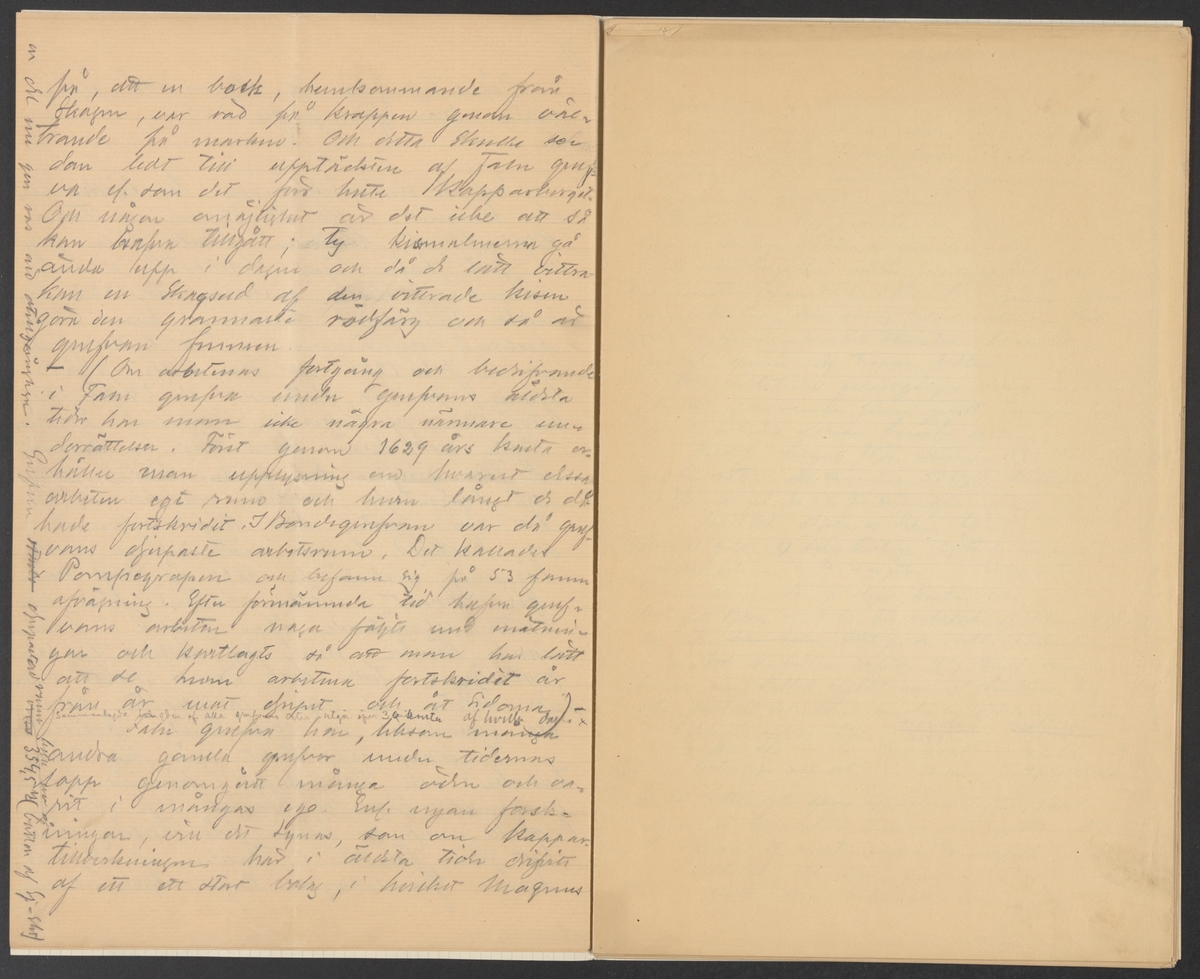 på, att en bock, hemkommande från
skogen, var röd på kroppen genom väl-
trande på marken. Och detta skulle se-
dan ledt till upptäckten af Falu gruf-
va el. som det förr hette Kopparberget.
Och någon omöjlighet är det icke att så
kan hafva tillgått; ty kismalmerna gå
ända upp i dagen och då de lätt vittra
kan en skogseld af den vittrade kisen
göra den grannaste rödfärg och så är
grufvan funnen.
- (Om arbetenas fortgång och bedrifvande
i Falu grufva under grufvans äldsta
tider har man icke några närmare un-
derrättelser. Först genom 1629 års karta er-
håller man upplysning om hvarest dessa
arbeten egt rum och huru långt de då
hade fortskridit. I Bondegrufvan var då gruf-
vans djupaste arbetsrum. Det kallades
Pompegropen och befann sig på 53 famn
afvägning. Efter förnämnda tid hafva gruf-
vans arbeten noga följts med mätnin-
gar och kartlagts så att man har lätt
att se huru arbetena fortskridit år
från år mot djupet och åt sidorna.) -
Sammanlagda längden af alla grufvans orter utgör öfver 3
Falu grufva har, liksom många
andra gamla grufvor under tidernas
lopp genomgått många öden och va-
rit i mångas ego. Enl. nyare forsk-
ningar, vill det synas, som om koppar-
tillverkningen här i äldsta tider drifvits
af ett ett stort bolag, i hvilket Magnus
Grufvans djupaste rum 354,5